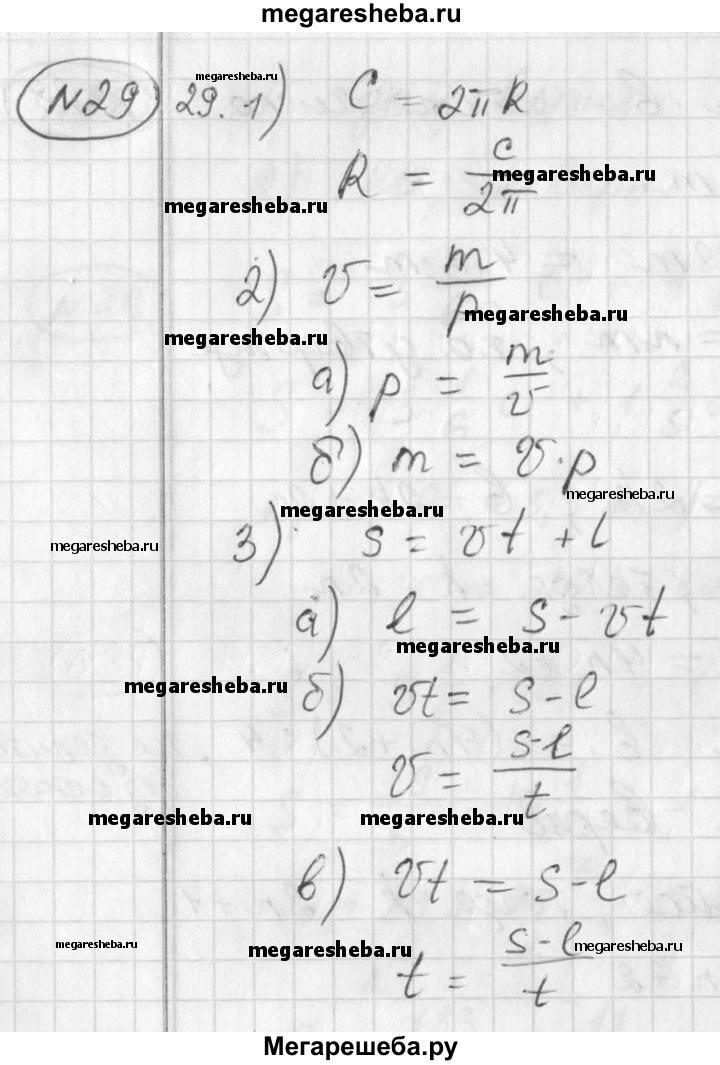 megaresheba.ru
N29 29. 1) C = 2πR
megaresheba.ru
R = c/2π
megaresheba.ru
megaresheba.ru
2) v = m/p
megaresheba.ru
megaresheba.ru
а) p = m/v
б) m = v·p
megaresheba.ru
megaresheba.ru
3) s = vt + l
megaresheba.ru
а) l = s - vt
megaresheba.ru
megaresheba.ru
б) vt = s - l
v = s-l/t
megaresheba.ru megaresheba.ru
в) vt = s - l
megaresheba.ru megaresheba.ru megaresheba.ru
t = s-l/t
Мегарешеба.ру